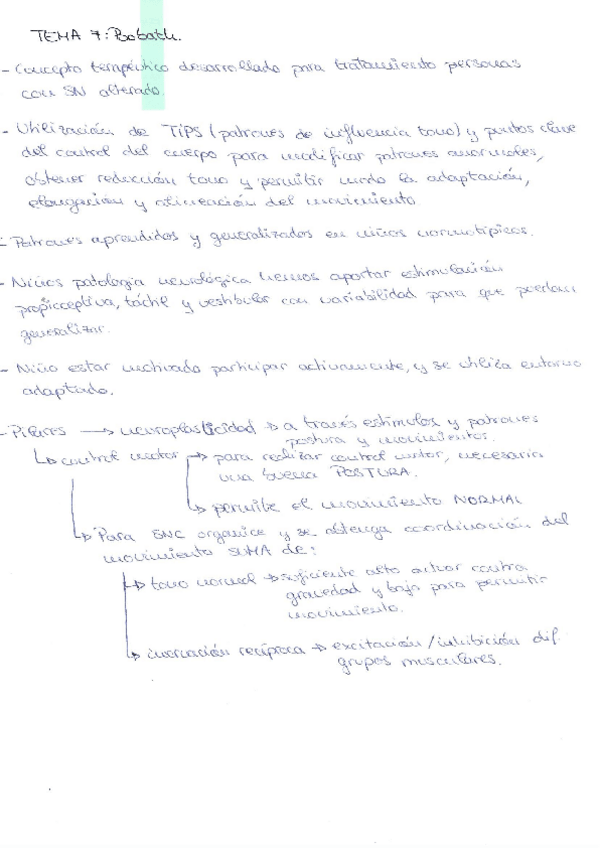 TEMA 7: Bobath.
- Concepto terapéutico desarrollado para tratamiento personas
con SN alterado.
- Utilización de TIPS (patrones de influencia tono) y puntos clave
del control del cuerpo para modificar patrones anormales,
obtener reducción tono y permitir la adaptación,
elongación y alineación del movimiento.
- Patrones aprendidos y generalizados en niños normotípicos.
- Niños patología neurológica hemos aportar estimulación
propioceptiva, táctil y vestibular con variabilidad para que puedan
generalizar.
- Niño estar motivado participar activamente, y se utiliza entorno
adaptado.
- Pilares → neuroplasticidad → a través estímulos y patrones
postura y movimientos.
↳ control motor → para realizar control motor, necesario
una buena POSTURA.
↳ permite el movimiento NORMAL
↳ Para SNC organice y se obtenga coordinación del
movimiento SUMA de:
↳ tono normal → suficiente alto actuar contra
gravedad y bajo para permitir
movimiento.
↳ inervación recíproca → excitación/inhibición dif
grupos musculares.